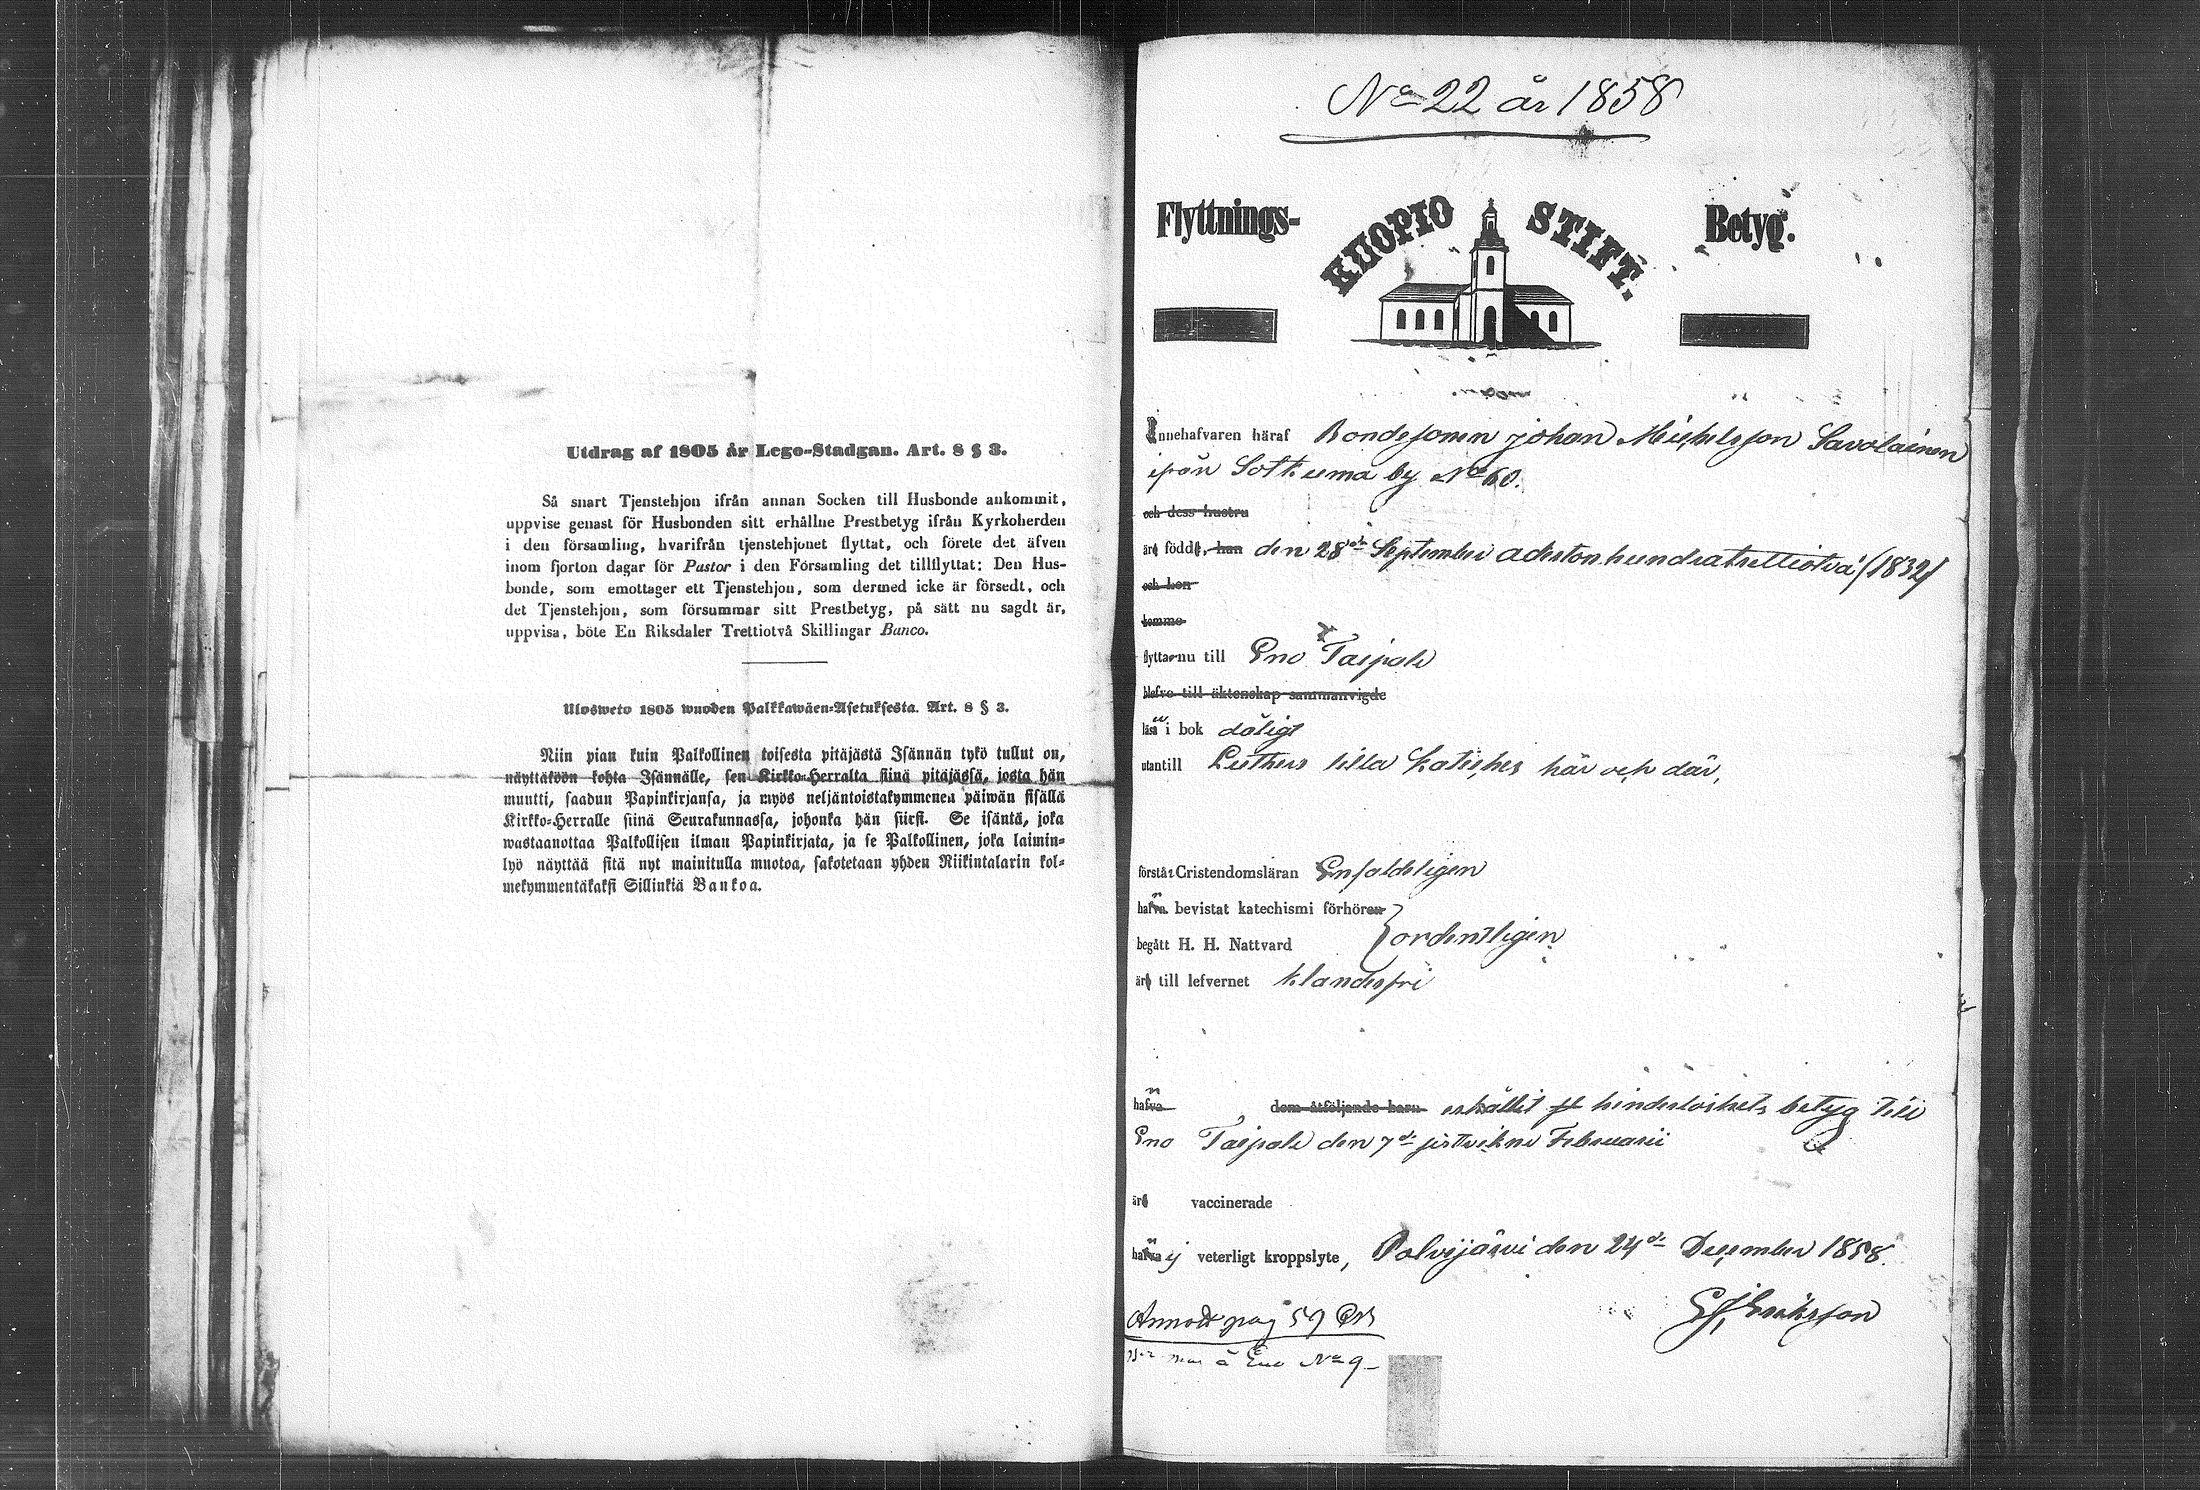 Utdrag af 1805 år Lego-Stadgan. Art. 8 § 3.
Så snart Tjenstehjon ifrån annan Socken till Husbonde ankommit,
uppvise genast för Husbonden sitt erhållne Prestbetyg ifrån Kyrkoherden
i den församling, hvarifrån tjenstehjonet flyttat, och förete det äfven
inom fjorton dagar för Pastor i den Församling det tillflyttat: Den Hus-
bonde, som emottager ett Tjenstehjon, som dermed icke är försedt, och
det Tjenstehjon, som försummar sitt Prestbetyg, på sätt nu sagdt är,
uppvisa, böte En Riksdaler Trettiotvå Skillingar Banco.
Ulosweto 1805 wuoden Palkkawäen-Asetuksesta. Art. 8 § 3.
Niin pian kuin Palkollinen toisesta pitäjästä Isännän tykö tullut on,
näyttäköön kohta Isännälle, sen Kirkko-Herralta siinä pitäjässä, josta hän
muutti, saadun Papinkirjansa, ja myös neljäntoistakymmenen päiwän sisällä
Kirkko-Herralle siinä Seurakunnassa, johonka hän siirsi. Se isäntä, joka
wastaanottaa Palkollisen ilman Papinkirjata, ja se Palkollinen, joka laimin-
lyö näyttää sitä nyt mainitulla muotoa, sakotetaan yhden Riikintalarin kol-
mekymmentäkaksi Sillinkiä Bankoa.
No 22 år 1858
Flyttnings- KUOPIO STIFT. Betyg.
Innehafvaren häraf Bondesonen Johan Michelsson Savolainen
ifrån Sotkuma by No 60.
och dess hustru
äro födde, han den 28de September adertonhundratrettiotvå (1832)
och hon
komme
flytta nu till Eno Taipale
blefvo till äktenskap sammanvigde
läsa i bok dåligt
utantill Luthers lilla Katches här och där,
förstår Cristendomsläran Enfaldeligen
hafva bevistat katechismi förhören
begått H. H. Nattvard } ordentligen
äro till lefvernet klanderfri
hafva dem åtföljande barn erhållit hinderlöshets betyg till
Eno Taipale den 7de Februarii
äro vaccinerade
hafva ej veterligt kroppslyte, Polvijärvi den 24de December 1858.
Eriksson
Annot pag 59
Eno No 9